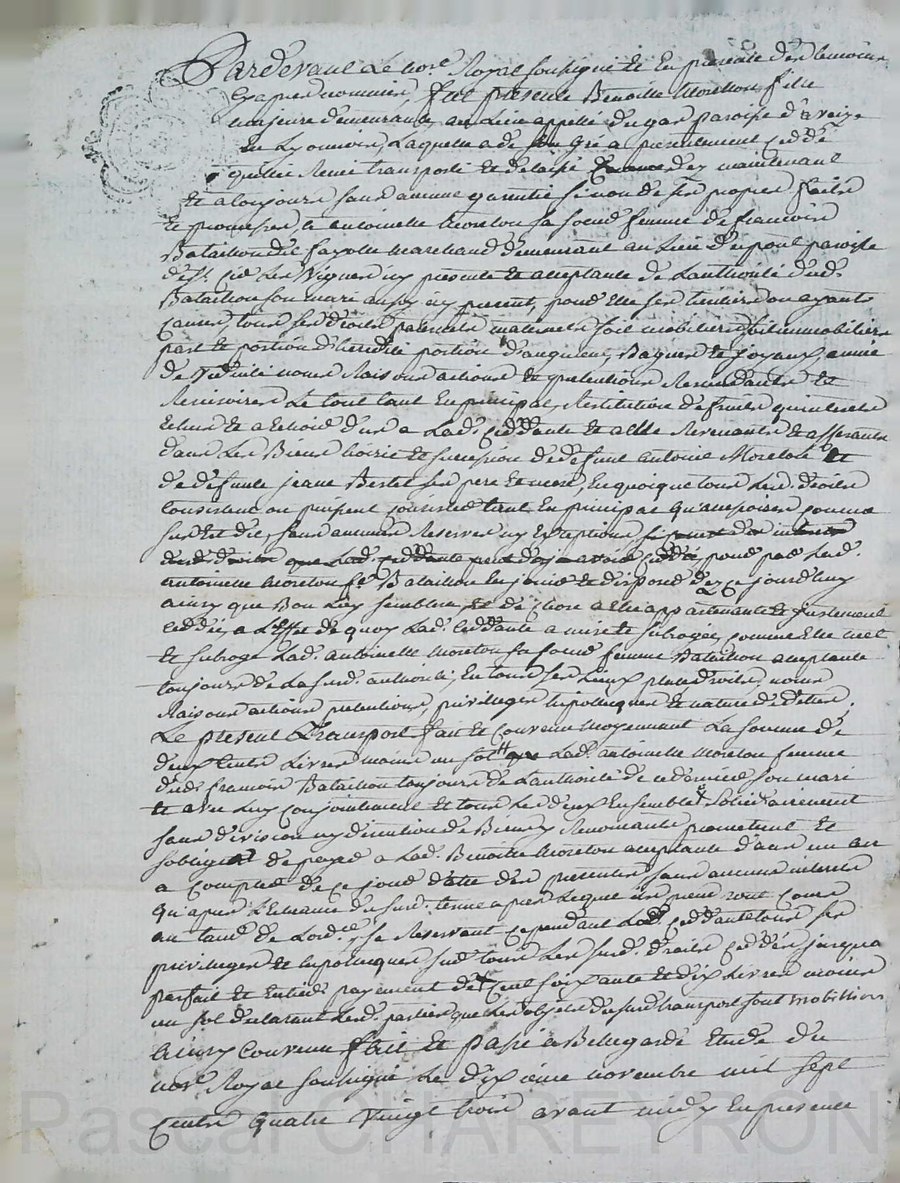 Pardevant Le no.re Royal soussigné et En presence des temoins
Cy apres nommés, fut presente Benoitte Moretton fille
majeure demeurante au Lieu appellé du gas paroisse d'aveize
en Lyonnois, Laquelle a de son gré a presentement ceddé
quitté Remis transporté et delaissé des maintenant
et a toujours sans aucune garantie sinon de ses propres faits
et promesses, a antoinette Moretton sa soeur femme de francois
Bataillon dit fayolle marchand demeurant au Lieu du pont paroisse
de St. Les Vignes icy presente et acceptante de L'authorité dud.
Bataillon son mari aussy icy present, pour elle ses heritiers ou ayants
Causes, tous ses droits paternels maternels soit mobiliers soit immobiliers
part et portion d'heredité portion d'augment, Bagues et Joyaux, année
de Viduité noms Raisons actions et pretentions Rescindantes et
Rescisoires Le tout tant En principal, Restitution de fruits qu'interets
Echus et a Echoir dus a Lad. ceddante et a elle Revenants et afferants
dans Les Biens hoirie et succession de defunt antoine Moretton et
de defunte jeane Bertet ses pere et mere, En quoi que tous Lesd. droits
Consistent ou puissent consister tant En principal qu'accessoires comme
sus Est dit, sans aucune Reserve ny Exception
pour par Lad.
antoinette Moretton fe. Bataillon En jouir et disposer des ce jourd'huy
ainsy que Bon Luy semblera, et de chose a elle appartenante et justement
ceddée, a L'Effet de quoy Lad. ceddante a mis et subrogée, comme elle met
et subroge Lad. antoinette Moretton sa soeur femme Bataillon acceptante
toujours de La susd. authorité, En tous ses Lieux place droits, noms
Raisons actions pretentions, privileges hipotheques et nature d'iceux,
Le present transport fait et Convenu moyennant La somme de
deux Cents Livres moins un sol Lad. antoinette Moretton femme
dud. francois Bataillon toujours de L'authorité de ce dernier son mari
et avec Luy conjointement et tous Les deux Ensemble solidairement
sans division ny discution de Biens y Renoncants promettent et
s'obligent de payer a Lad. Benoitte Moretton acceptante dans un an
a compter de ce jour d'atte des presentes sans aucuns interets
qu'apres L'Echeance dudit. terme apres Lequel ils prendront cours
au taux de Lord.ce, se Reservant cependant Lad. ceddante tous ses
privileges et hipotheques sur tous Les susd. droits ceddés jusqu'a
parfait et Entier payement de Cent soixante et dix Livres moins
un sol declarant Lesd. parties que Les objets du susd. transport sont mobiliers
Ainsy Convenu fait et passé a Bellegarde Etude du
no.re Royal soussigné Le dix novembre mil sept
Cents quatre vingt trois avant midy En presence
Pascal CHAREYRON